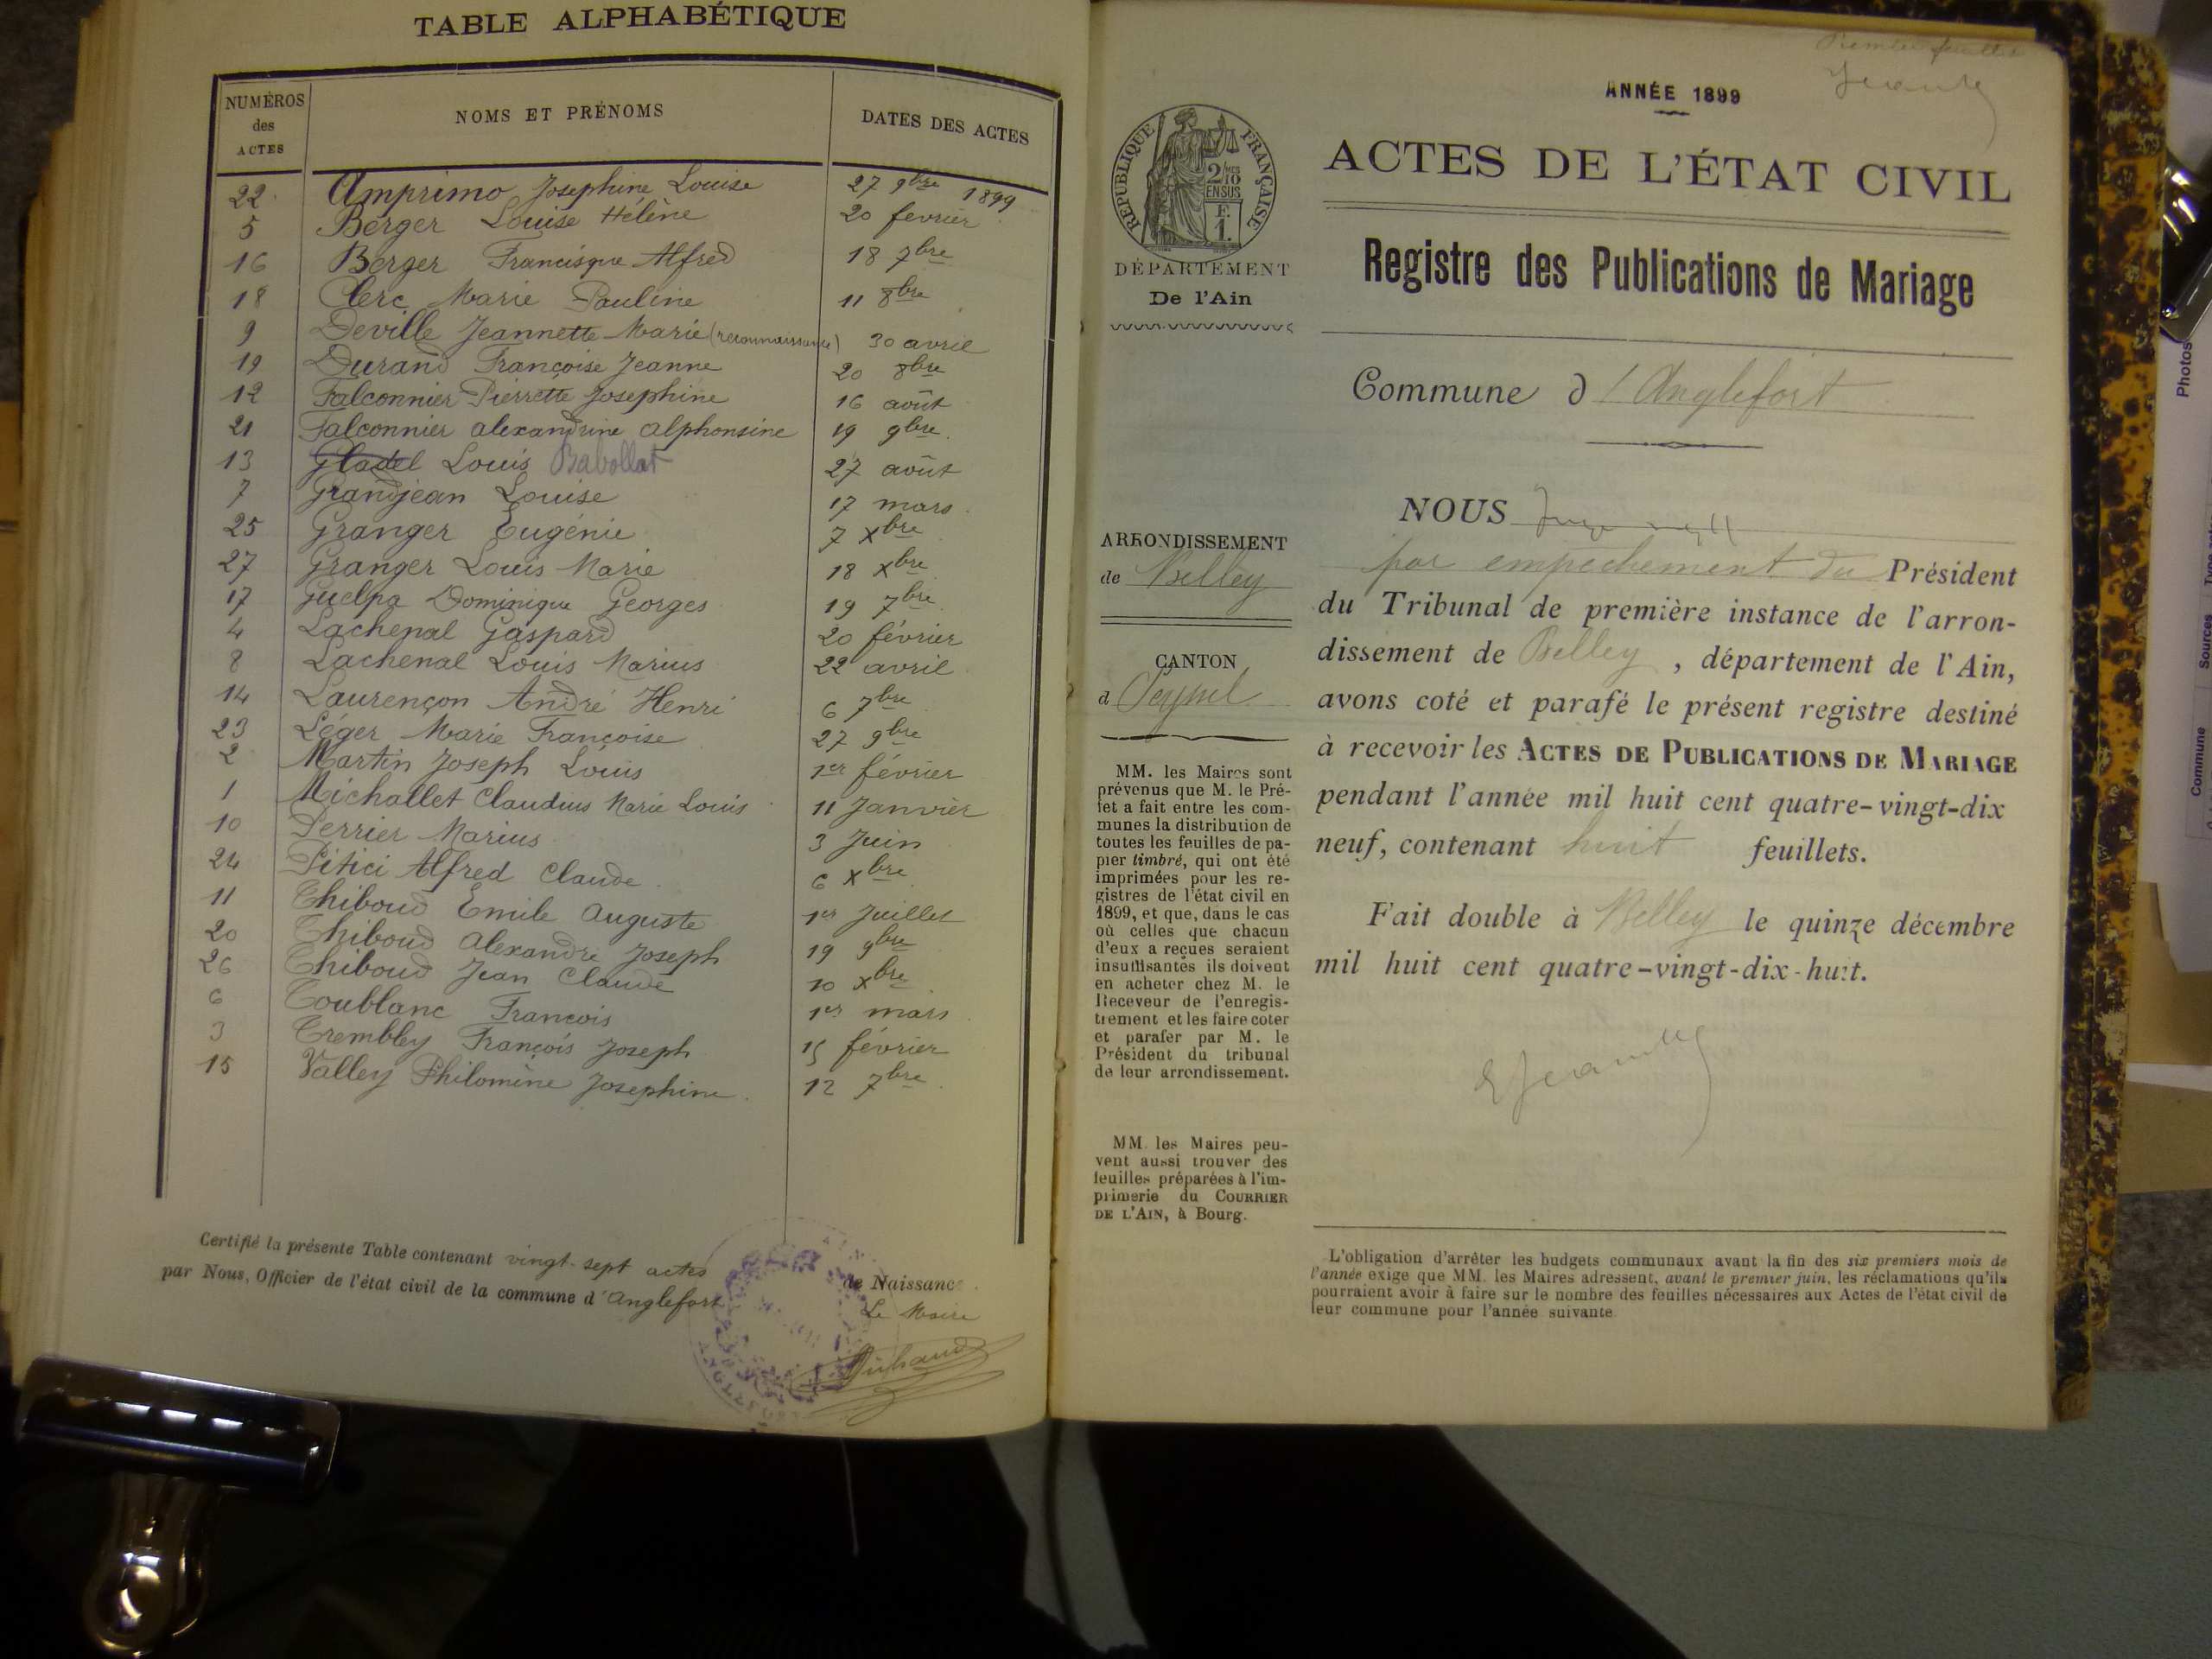 TABLE ALPHABÉTIQUE
NUMÉROS des ACTES NOMS ET PRÉNOMS DATES DES ACTES
22 Amprimo Josephine Louise 27 9bre 1899
5 Berger Louise Hélène 20 fevrier
16 Berger Francisque Alfred 18 7bre
18 Clerc Marie Pauline 11 8bre
9 Deville Jeannette Marie (reconnaissance) 30 avril
19 Durand Françoise Jeanne 20 8bre
12 Falconnier Pierrette Josephine 16 août
21 Falconnier alexandrine alphonsine 19 9bre
13 Gladel Louis Babollat 27 août
7 Grandjean Louise 17 mars
25 Granger Eugénie 7 Xbre
27 Granger Louis Marie 18 Xbre
17 Guelpa Dominique Georges 19 7bre
4 Lachenal Gaspard 20 février
8 Lachenal Louis Marius 22 avril
14 Laurençon André Henri 6 7bre
23 Léger Marie Françoise 27 9bre
2 Martin Joseph Louis 1er février
1 Michallet Claudius Marie Louis 11 Janvier
10 Perrier Marius 3 Juin
24 Pitici Alfred Claude 6 Xbre
11 Thiboud Emile Auguste 1er Juillet
20 Thiboud Alexandre Joseph 19 9bre
26 Thiboud Jean Claude 10 Xbre
6 Toublanc François 1er mars
3 Trembley François Joseph 15 février
15 Valley Philomène Josephine 12 7bre
Certifié la présente Table contenant vingt-sept actes de Naissance
par Nous, Officier de l'état civil de la commune d'Anglefort
Le Maire
ANNÉE 1899
RÉPUBLIQUE FRANÇAISE
2/10 MES
EN SUS
F.
1.
DÉPARTEMENT
De l'Ain
ACTES DE L'ÉTAT CIVIL
Registre des Publications de Mariage
Commune d'Anglefort
ARRONDISSEMENT
de Belley
CANTON
d Seyssel
MM. les Maires sont
prévenus que M. le Pré-
fet a fait entre les com-
munes la distribution de
toutes les feuilles de pa-
pier timbré, qui ont été
imprimées pour les re-
gistres de l'état civil en
1899, et que, dans le cas
où celles que chacun
d'eux a reçues seraient
insuffisantes ils doivent
en acheter chez M. le
Receveur de l'enregis-
trement et les faire coter
et parafer par M. le
Président du tribunal
de leur arrondissement.
MM. les Maires peu-
vent aussi trouver des
feuilles préparées à l'im-
primerie du COURRIER
DE L'AIN, à Bourg.
NOUS
par empechement du Président
du Tribunal de première instance de l'arron-
dissement de Belley, département de l'Ain,
avons coté et parafé le présent registre destiné
à recevoir les ACTES DE PUBLICATIONS DE MARIAGE
pendant l'année mil huit cent quatre-vingt-dix
neuf, contenant huit feuillets.
Fait double à Belley le quinze décembre
mil huit cent quatre-vingt-dix-huit.
L'obligation d'arrêter les budgets communaux avant la fin des six premiers mois de
l'année exige que MM. les Maires adressent, avant le premier juin, les réclamations qu'ils
pourraient avoir à faire sur le nombre des feuilles nécessaires aux Actes de l'état civil de
leur commune pour l'année suivante.
Photos
Commune Sources